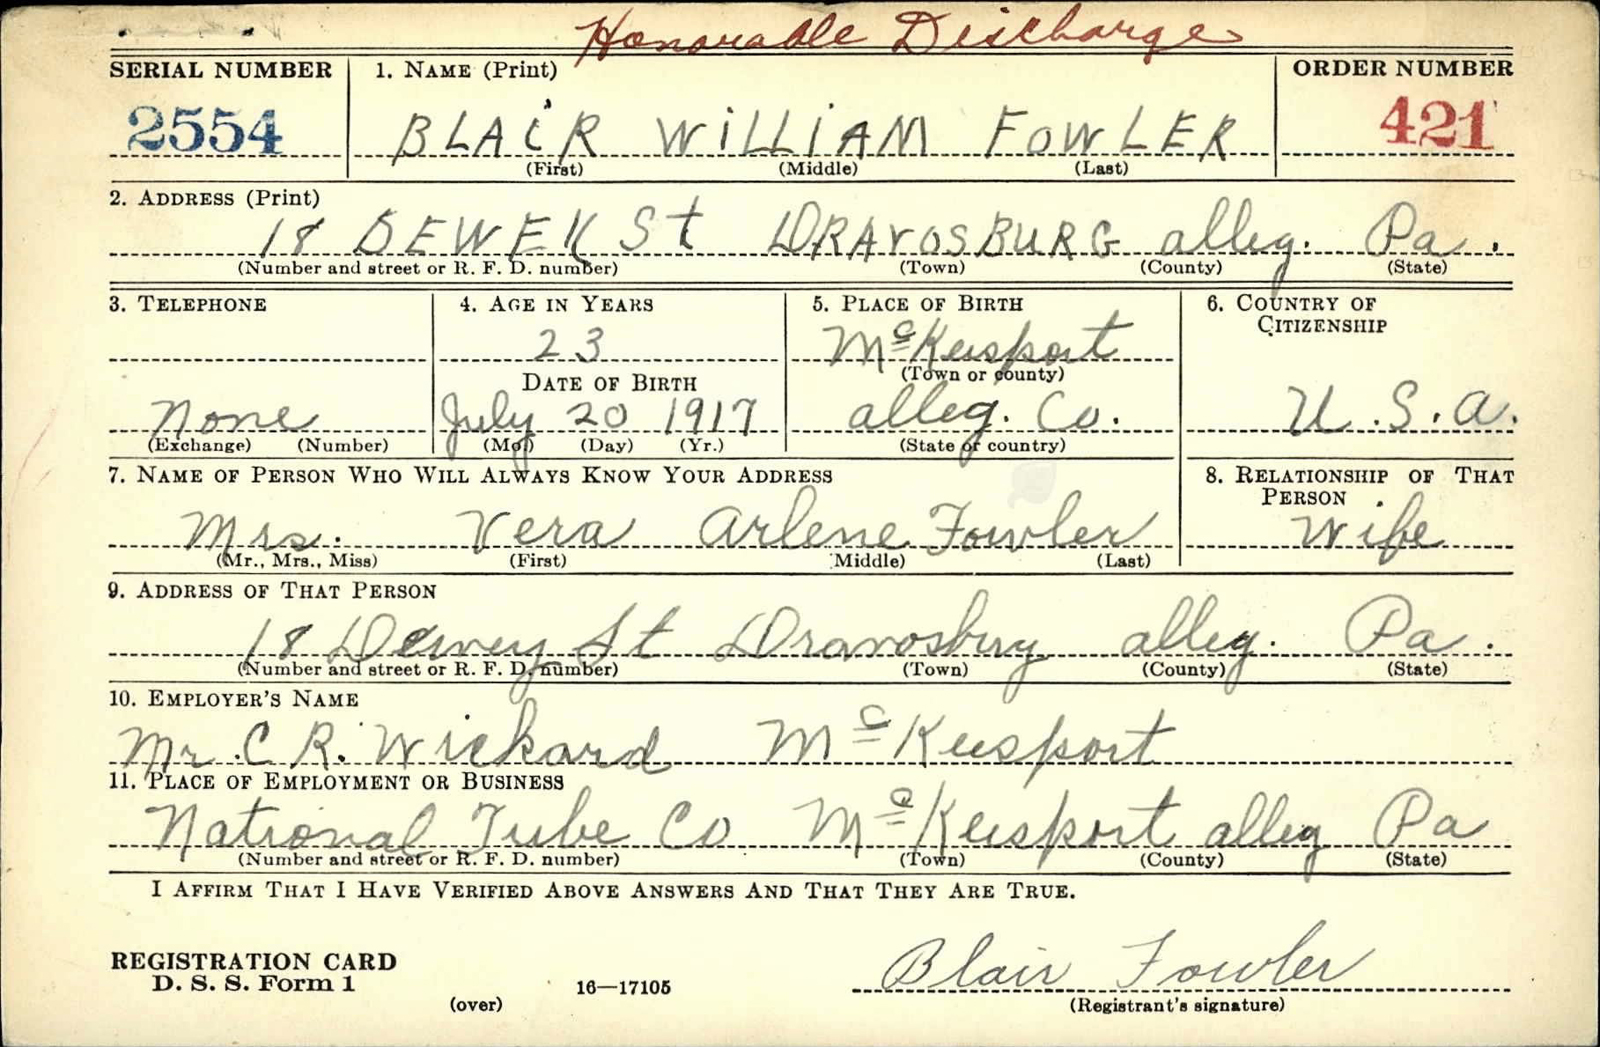 Honorable Discharge
SERIAL NUMBER 1. NAME (Print) ORDER NUMBER
2554 BLAIR WILLIAM FOWLER 421
(First) (Middle) (Last)
2. ADDRESS (Print)
18 DEWEY St DRAVOSBURG alleg. Pa.
(Number and street or R. F. D. number) (Town) (County) (State)
3. TELEPHONE 4. AGE IN YEARS 5. PLACE OF BIRTH 6. COUNTRY OF
CITIZENSHIP
23 McKeesport
DATE OF BIRTH (Town or county)
None July 20 1917 alleg. Co. U.S.A.
(Exchange) (Number) (Mo.) (Day) (Yr.) (State or country)
7. NAME OF PERSON WHO WILL ALWAYS KNOW YOUR ADDRESS 8. RELATIONSHIP OF THAT
PERSON
Mrs. Vera Arlene Fowler Wife
(Mr., Mrs., Miss) (First) (Middle) (Last)
9. ADDRESS OF THAT PERSON
18 Dewey St Dravosburg alleg. Pa.
(Number and street or R. F. D. number) (Town) (County) (State)
10. EMPLOYER'S NAME
Mr. C. R. Wickard McKeesport
11. PLACE OF EMPLOYMENT OR BUSINESS
National Tube Co McKeesport alleg Pa
(Number and street or R. F. D. number) (Town) (County) (State)
I AFFIRM THAT I HAVE VERIFIED ABOVE ANSWERS AND THAT THEY ARE TRUE.
REGISTRATION CARD Blair Fowler
D. S. S. Form 1 16—17105
(over) (Registrant's signature)